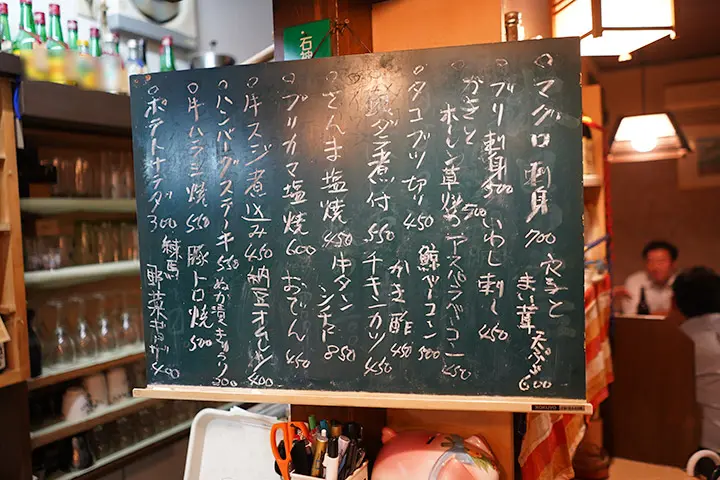 マグロ刺身 700
穴子と
まい茸
天ぷら 600
ブリ刺身 500
いわし刺し 450
かきと
ホーレン草焼 500
アスパラベーコン 450
タコブツ切り 450
鯨ベーコン 500
銀ダラ煮付 550
かき酢 450
チキンカツ 450
さんま塩焼 450
牛タン
シチュー 850
ブリカマ塩焼 600
おでん 450
牛スジ煮込み 450
納豆オムレツ 400
ハンバーグステーキ 550
ぬか漬きゅうり 300
牛ハラミ焼 550
豚トロ焼 500
ポテトサラダ 300
練馬
野菜ギョーザ 400
石神
KOKUYO